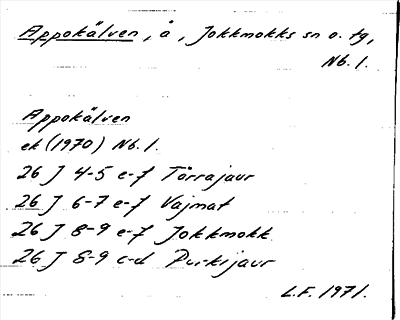 Appokälven, å, Jokkmokks sn o. tg,
Nb. l.
Appokälven
ek (1970) Nb. l.
26 J 4-5 e-f Tårrajaur
26 J 6-7 e-f Vajmat
26 J 8-9 e-f Jokkmokk
26 J 8-9 c-d Purkijaur
L.F. 1971.